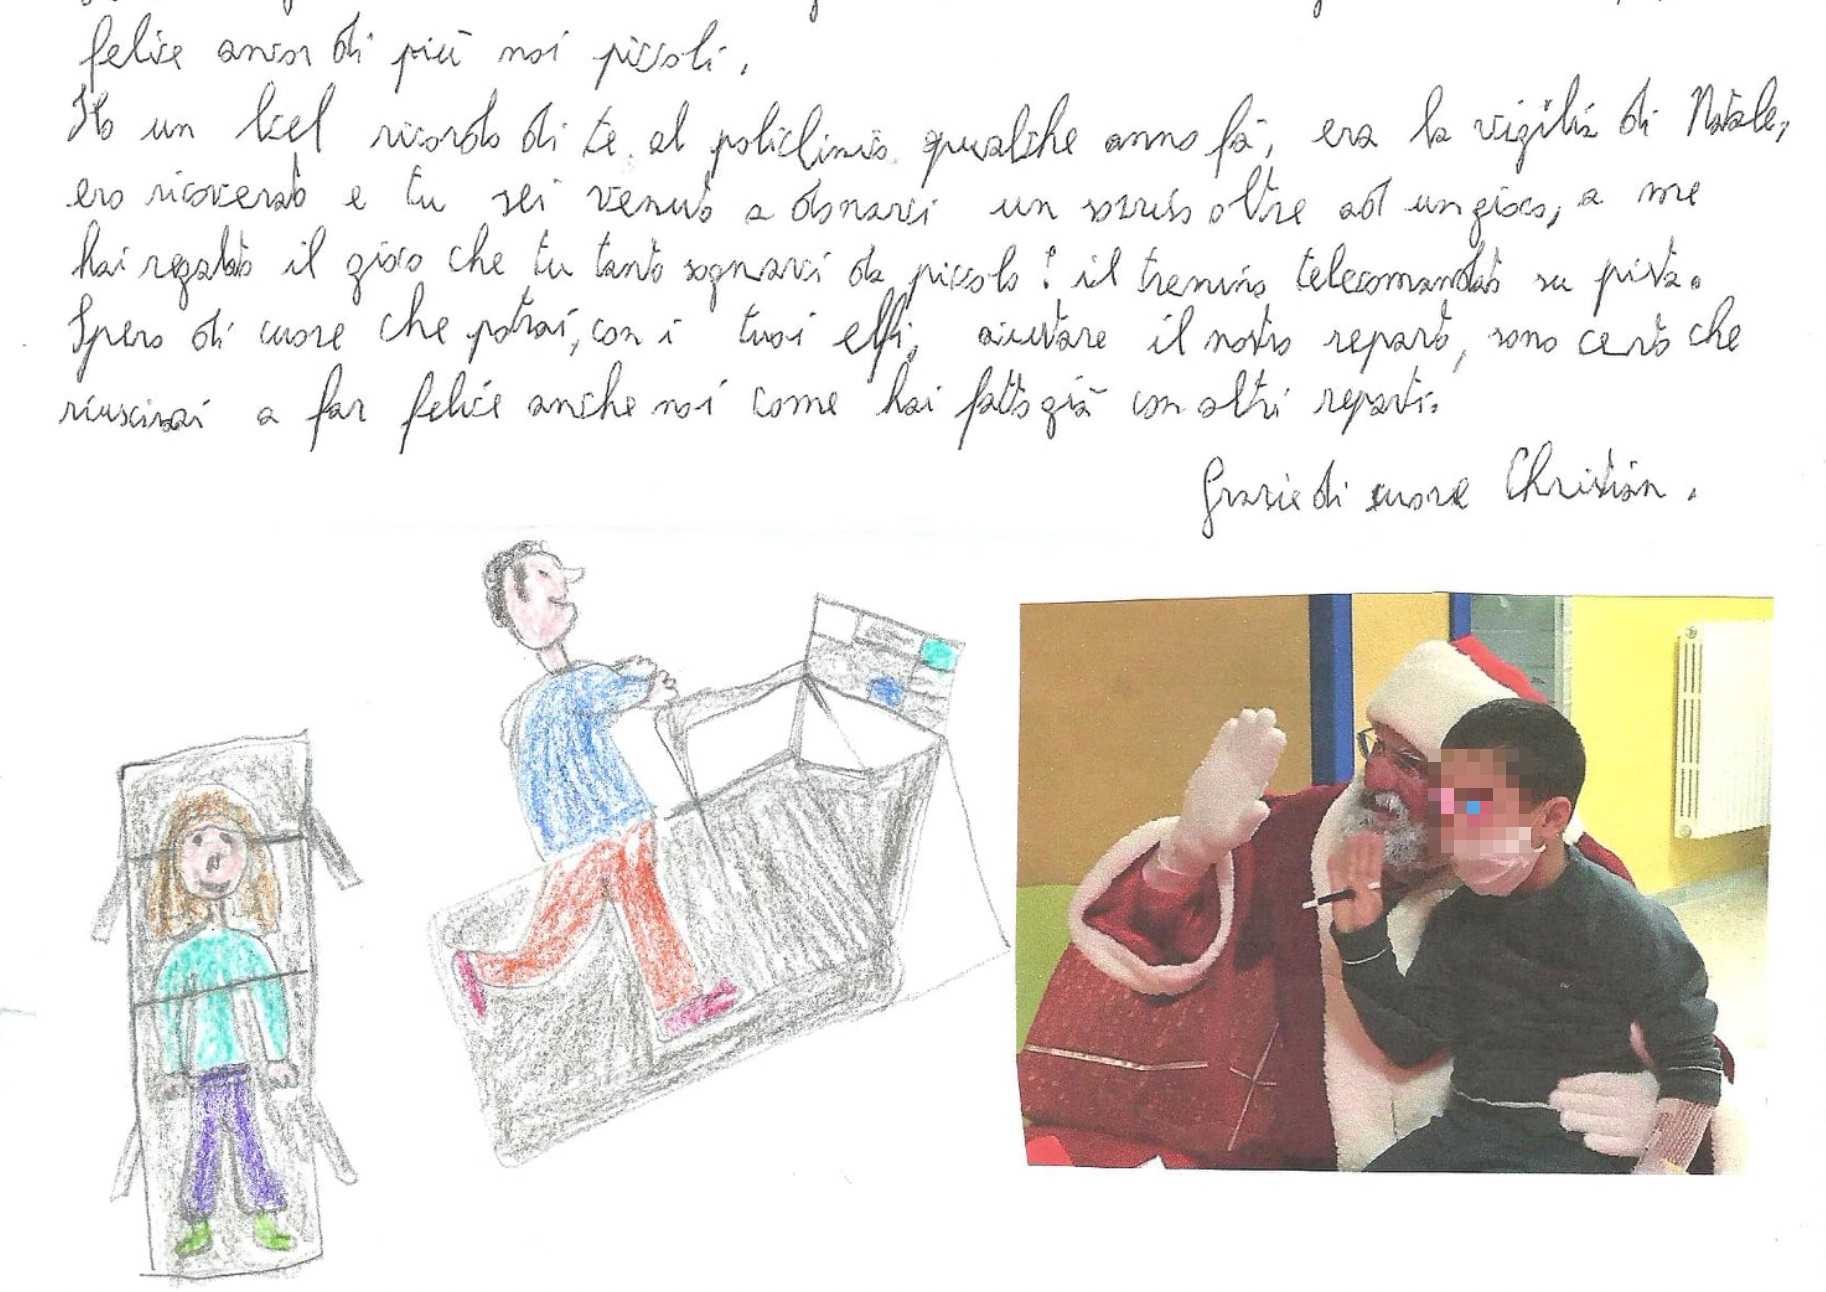 felice ancor di più noi piccoli.
Ho un bel ricordo di te al policlinico qualche anno fà, era la vigilia di Natale,
ero ricoverato e tu sei venuto a donarci un sorriso oltre ad un gioco, a me
hai regalato il gioco che tu tanto sognavi da piccolo: il trenino telecomandato su pista.
Spero di cuore che potrai, con i tuoi elfi, aiutare il nostro reparto, sono certo che
riuscirai a far felice anche noi come hai fatto già con altri reparti.
Grazie di cuore Christian.